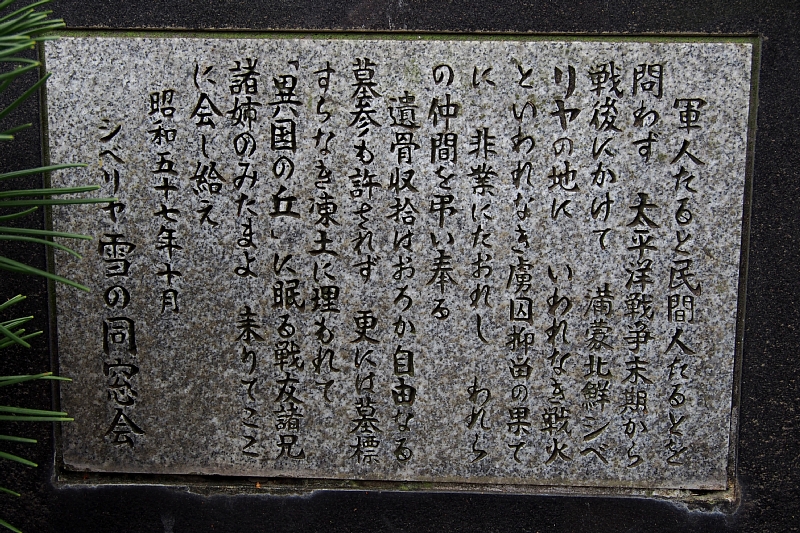 軍人たると民間人たるとを
問わず　太平洋戦争末期から
戦後にかけて　満蒙北鮮シベ
リヤの地に　いわれなき戦火
といわれなき虜囚抑留の果て
に　非業にたおれし　われら
の仲間を弔い奉る
遺骨収拾はおろか自由なる
墓参も許されず　更には墓標
すらなき凍土に埋もれて
「異国の丘」に眠る戦友諸兄
諸姉のみたまよ　来りてここ
に会し給え
昭和五十七年十月
シベリヤ雪の同窓会